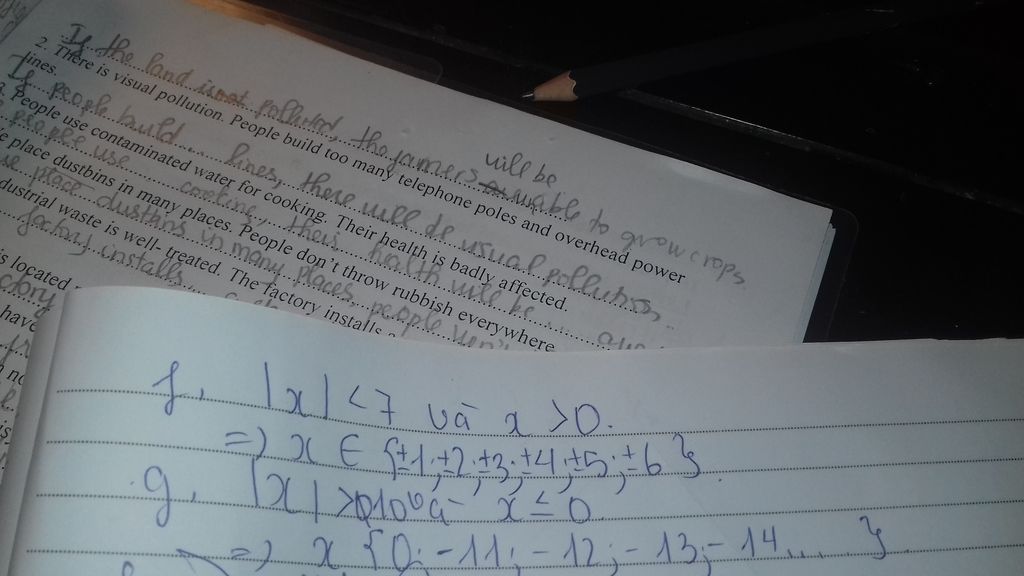 If the land is not polluted, the farmers will be unable to grow crops.
2. There is visual pollution. People build too many telephone poles and overhead power
lines.
If people build ... lines, there will be visual pollution.
People use contaminated water for cooking. Their health is badly affected.
people use cooking, their health will be ...
place dustbins in many places. People don't throw rubbish everywhere
place dustbins in many places, people won't
dustrial waste is well- treated. The factory installs
factory installs...
is located
ctory
have
f, |x| < 7 và x > 0.
=> x ∈ {±1; ±2; ±3; ±4; ±5; ±6}
g, |x| > 10 và x ≤ 0
=> x {0; -11; -12; -13; -14... }